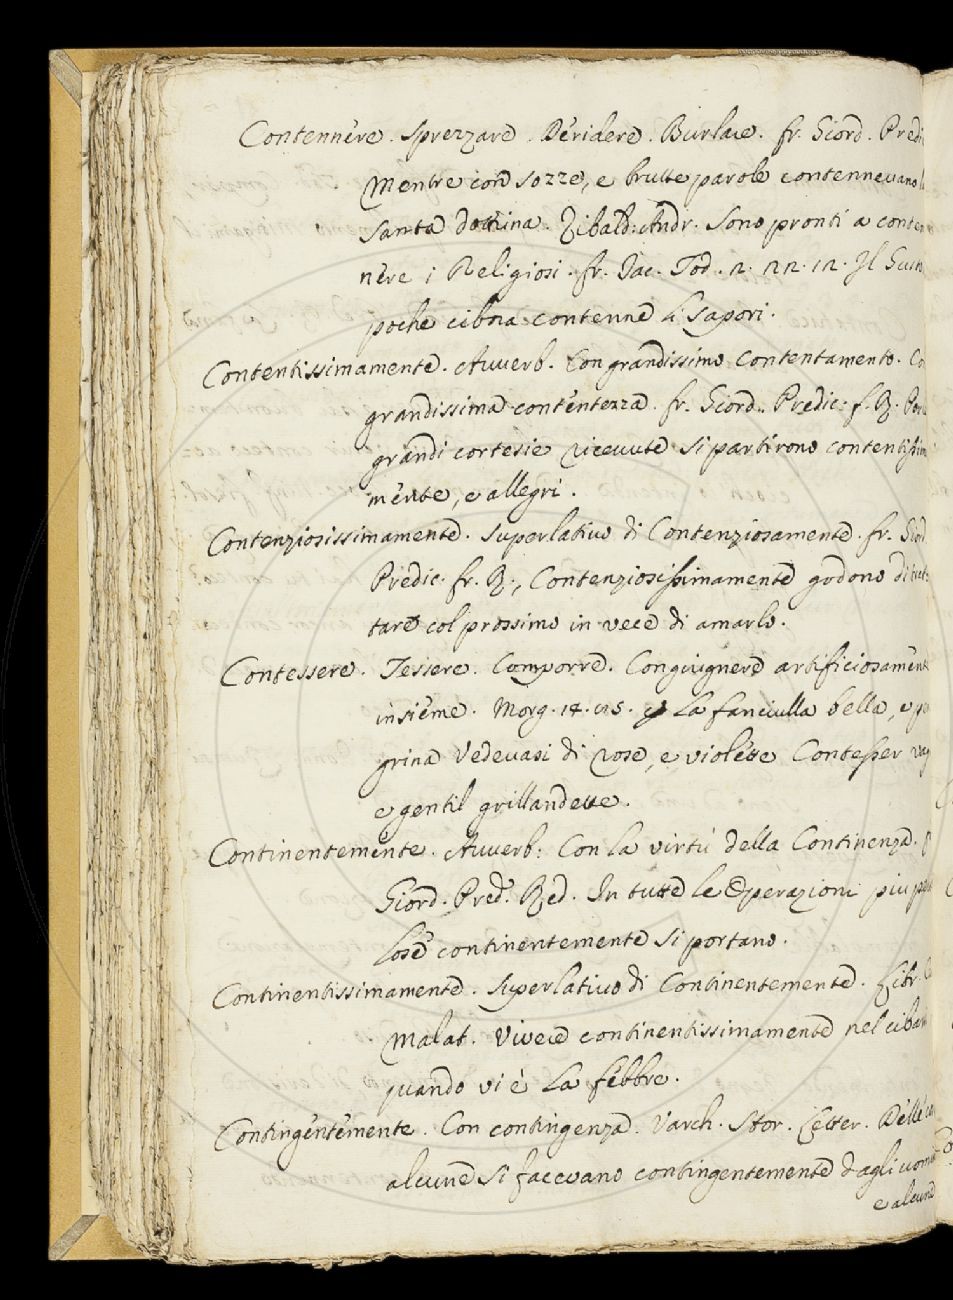 Contennere. Sprezzare. Deridere. Burlare. fr. Giord. Pred
Mentre con sozze, e brutte parole contennevano
Santa dottrina. Zibald: Andr. Sono pronti a conten
nere i Religiosi. fr. Jac. Tod. 2. 22. 12. Il
poche cibora contenne li sapori.
Contentissimamente. Avverb. Con grandissimo Contentamento. Co
grandissima contentezza. fr. Giord. Predic: f. R.
grandi cortesie ricevute si partirono contentissima
mente, e allegri.
Contenziosissimamente. Superlativo di Contenziosamente. fr. Giord
Predic. fr. R., Contenziosissimamente godono di
tare col prossimo in vece di amarlo.
Contessere. Tessere. Comporre. Congiugnere artificiosamente
insieme. Morg. 14. La fanciulla bella, e pe
grina Vedevasi di rose, e violette Contesser
e gentil grillandette.
Continentemente. Avverb: Con la virtù della Continenza.
Giord. Pred. Red. In tutte le Operazioni piu
lose continentemente si portano.
Continentissimamente. Superlativo di Continentemente. Libr.
Malat. Vivere continentissimamente nel cibar
quando vi è la febbre.
Contingentemente. Con contingenza. Varch. Stor. Letter. Delle
alcune si facevano contingentemente dagli uomi
e alcune